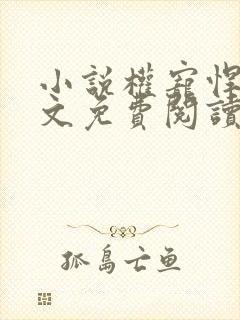 小說權寵悍
文免費閱讀
孤島亡鱼